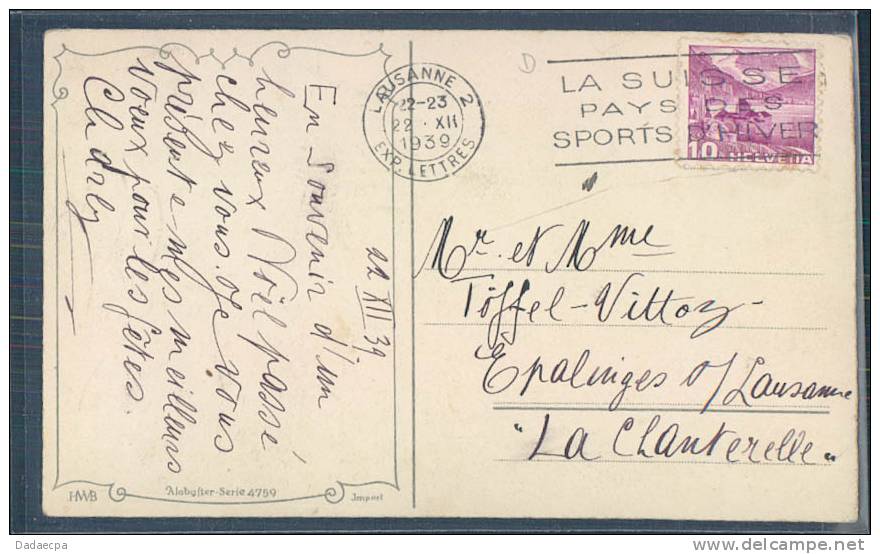 22 XII 39
En Souvenir d'un
heureux Noël passé
chez vous. Je vous
présente mes meilleurs
voeux pour les fêtes.
LAUSANNE 2
22-23
22 · XII
1939
EXP. LETTRES
LA SUISSE
PAYS DES
SPORTS D'HIVER
10 HELVETIA
D
Mr. et Mme
Töffel-Vittoz-
Epalinges s/Lausanne
"La Chanterelle"
HWB
Alabaster-Serie 4759
Import
Dadaecpa
www.delcampe.net